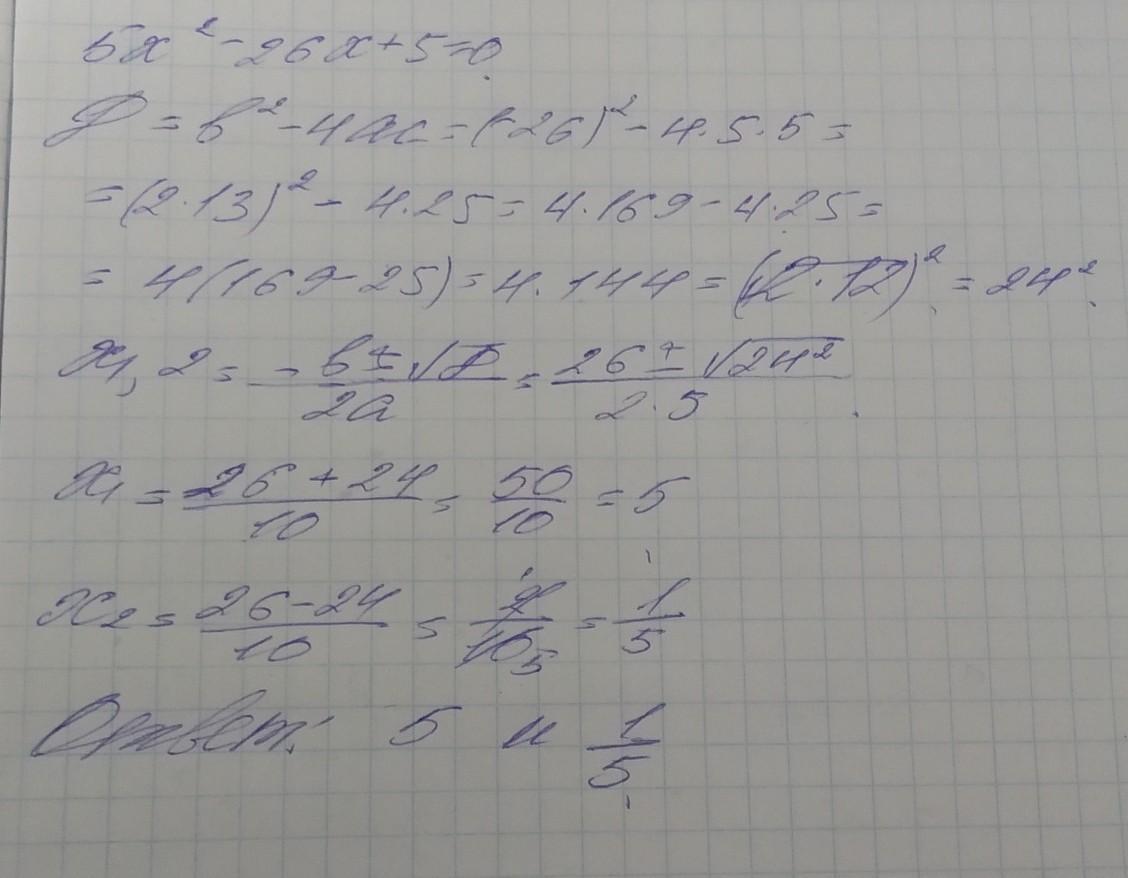 5x² - 26x + 5 = 0.
D = b² - 4ac = (-26)² - 4·5·5 =
= (2·13)² - 4·25 = 4·169 - 4·25 =
= 4(169 - 25) = 4·144 = (2·12)² = 24².
x₁,₂ = (-b ± √D)/(2a) = (26 ± √24²)/(2·5).
x₁ = (26 + 24)/10 = 50/10 = 5
x₂ = (26 - 24)/10 = 2/10 = 1/5
Ответ: 5 и 1/5.